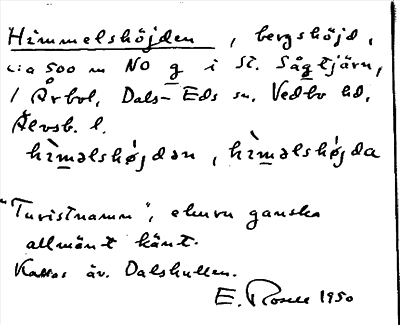 Himmelshöjden, bergshöjd,
c:a 500 m NO g i St. Sågtjärn,
i Årbol, Dals-Eds sn. Vedbo hd.
Älvsb. l.
hìmalshø̀jdan, hìmalshø̀jda
"Turistnamn", ehuru ganska
allmänt känt.
Kallas äv. Dalskullen.
E. Rosell 1950